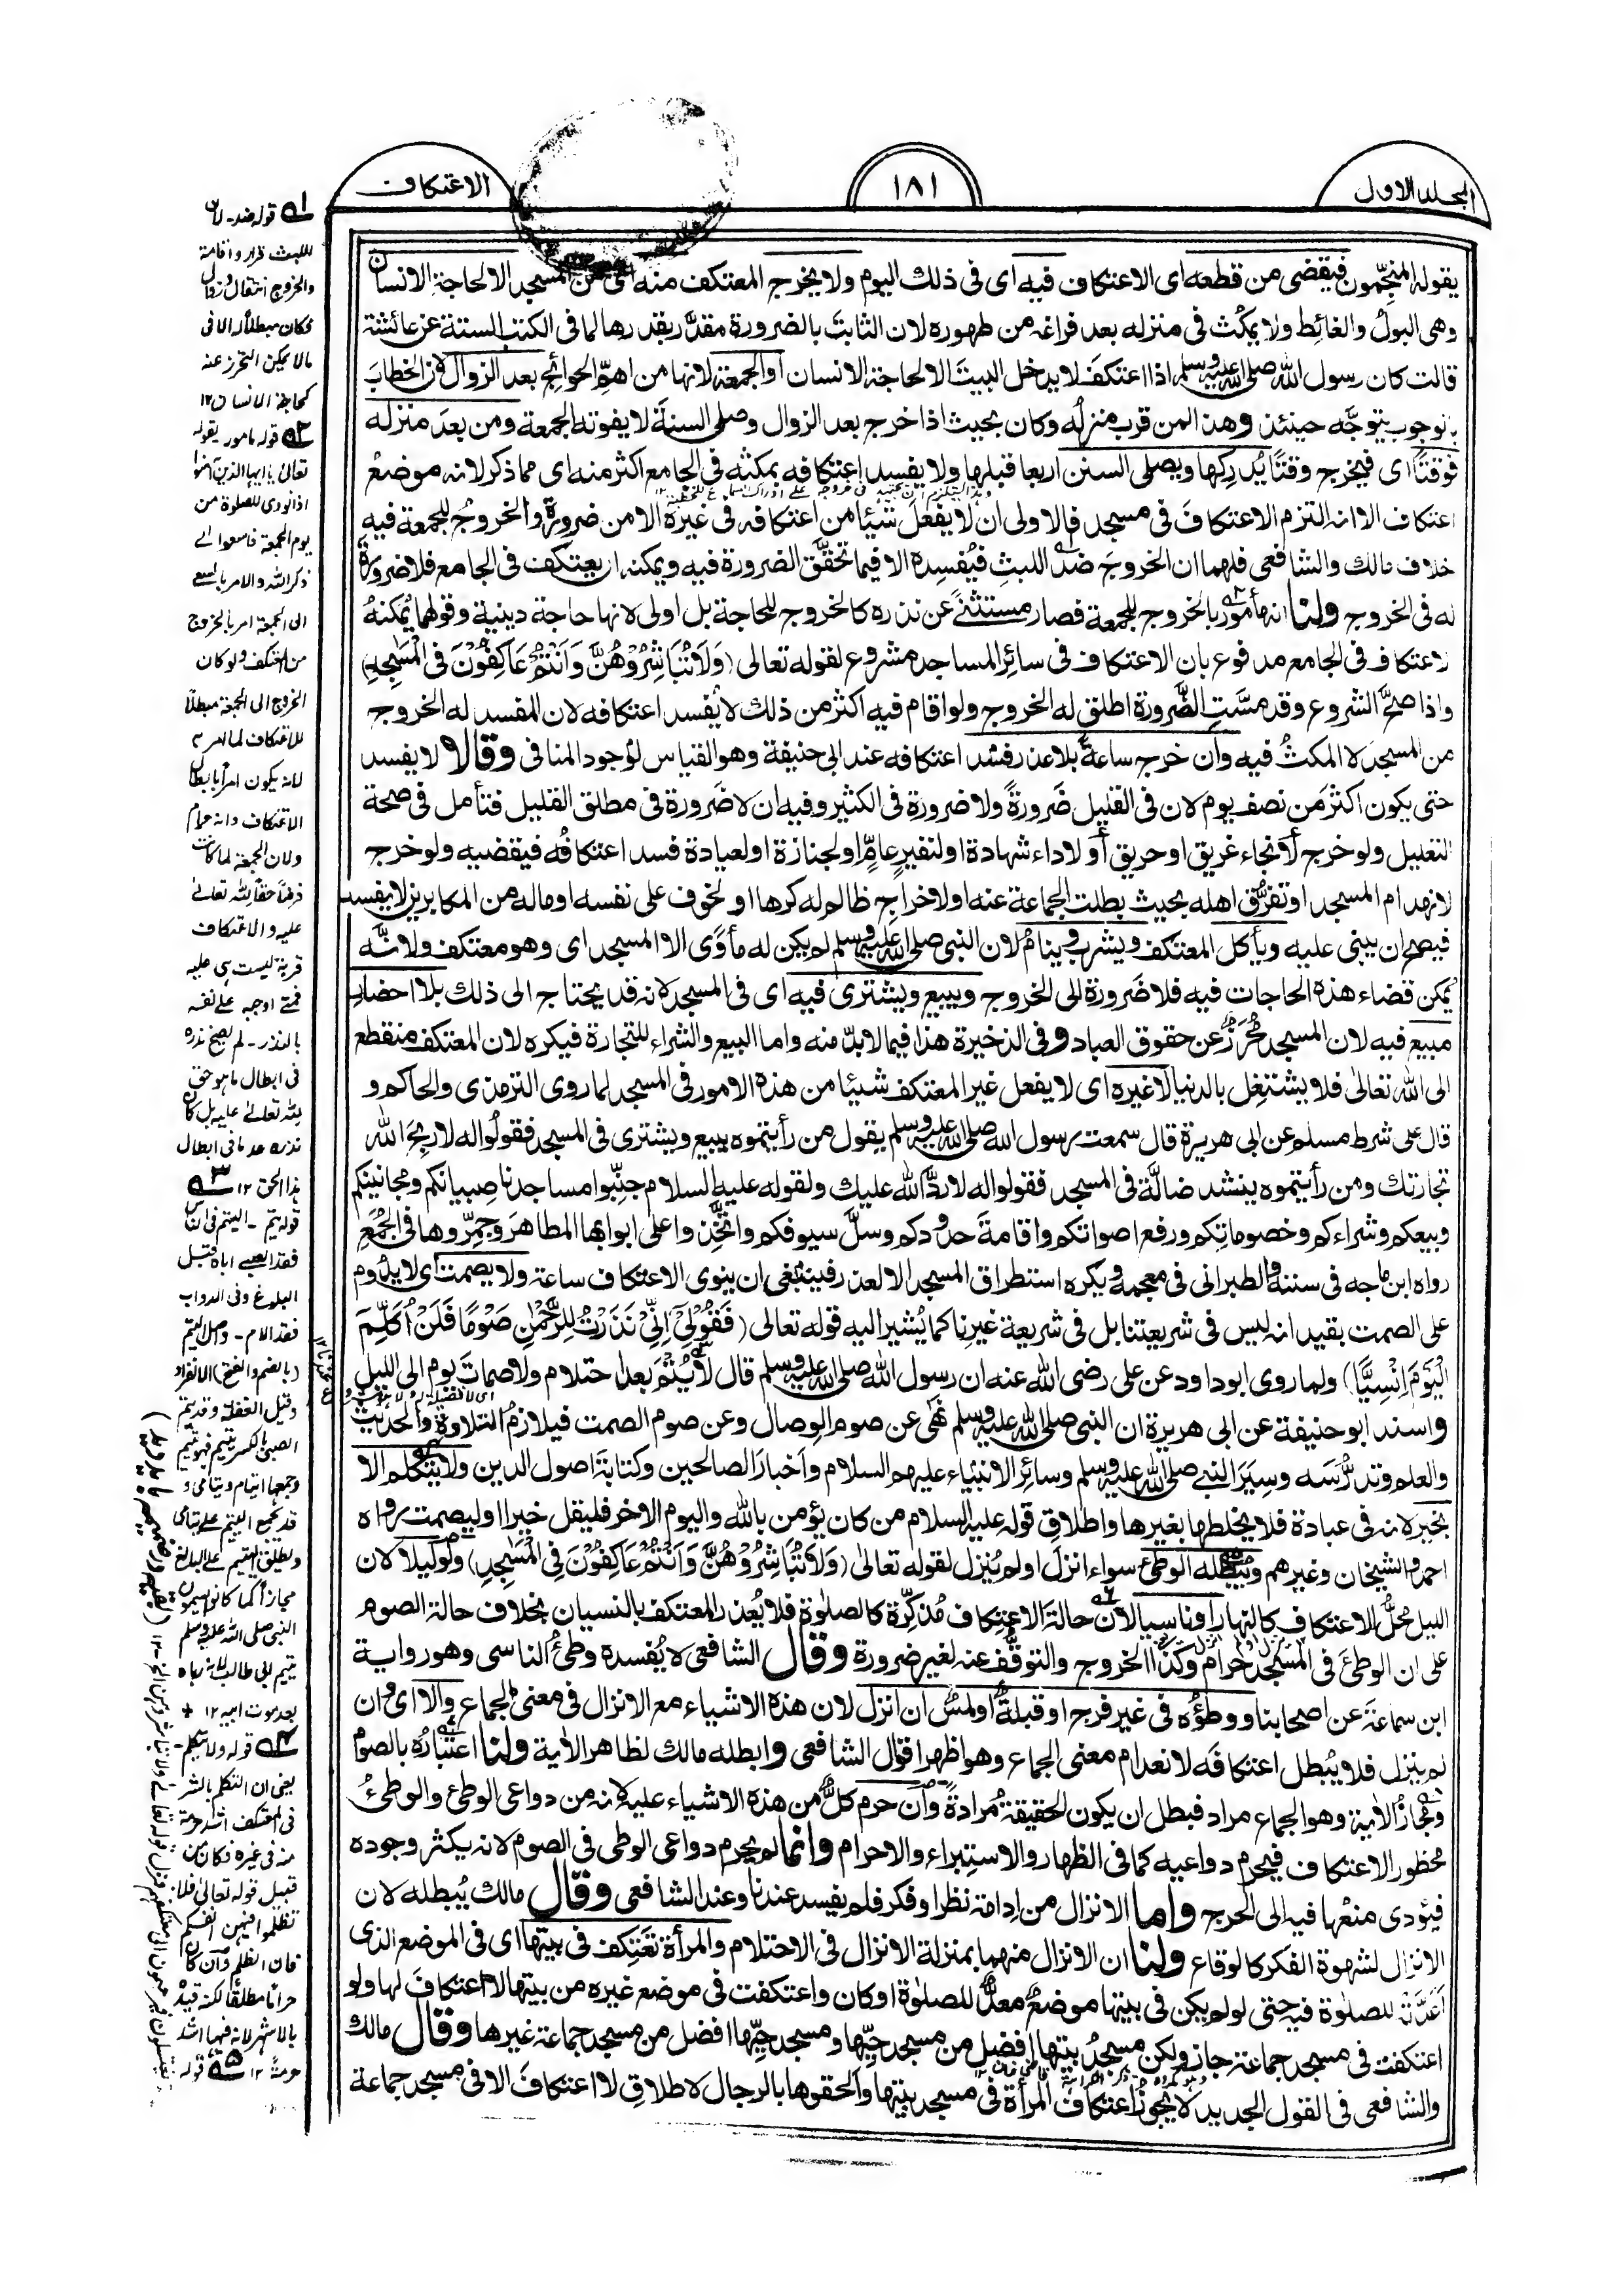 المجلد الاول
١٨١
الاعتكاف
يقوله المنجّمون فيقضى من قطعه اى الاعتكاف فيه اى فى ذلك اليوم ولا يخرج المعتكف منه اى من المسجد الا لحاجة الانسان
وهى البولُ والغائِط ولا يمكُث فى منزله بعد فراغه من طهوره لان الثابتَ بالضرورة مقدَّر بقدرها لما فى الكتب الستة عن عائشة
قالت كان رسول الله صلى الله عليه وسلم اذا اعتكفَ لا يدخل البيتَ الا لحاجة الانسان او الجمعة لانها من اهمّ الحوائج بعد الزوال لان الخطابَ
بالوجوب يتوجَّه حينئذ وهذا لمن قرب منزلُه وكان بحيث اذا خرج بعد الزوال وصلى السنةَ لا يفوته الجمعة ومن بعدَ منزله
فوقتًا اى فيخرج وقتًا يُدرِكها ويصلى السنن اربعا قبلها ولا يفسد اعتكافه بمكثه فى الجامع اكثر منه اى مما ذكر لانه موضعُ
اعتكاف الا انه التزم الاعتكافَ فى مسجد فالاولى ان لا يفعلَ شيئا من اعتكافه فى غيره الا من ضرورة والخروجُ للجمعة فيه
خلاف مالك والشافعى فلهما ان الخروجَ ضدّ اللبث فيُفسِده الا فيما تحقّق الضرورة فيه ويمكنه ان يعتكف فى الجامع فلا ضرورة
له فى الخروج ولنا انه مأمور بالخروج للجمعة فصار مستثنىً عن نذره كالخروج للحاجة بل اولى لانها حاجة دينية وقولهما يُمكنهُ
الاعتكاف فى الجامع مدفوع بان الاعتكاف فى سائِر المساجد مشروع لقوله تعالى (وَلَا تُبَاشِرُوْهُنَّ وَاَنْتُمْ عَاكِفُوْنَ فِى الْمَسٰجِدِ)
واذا صحَّ الشروع وقد مسَّتِ الضَّرورة اطلق له الخروج ولو اقام فيه اكثرَ من ذلك لا يُفسد اعتكافه لان المفسد له الخروج
من المسجد لا المكثُ فيه وان خرج ساعةً بلا عذر فسَد اعتكافه عند ابى حنيفة وهو القياس لوُجود المنافى وقالا لا يفسد
حتى يكون اكثرَ من نصف يوم لان فى القليل ضَرورةً ولا ضرورة فى الكثير وفيه ان لا ضَرورة فى مطلق القليل فتأمل فى صحة
التعليل ولو خرج لانجاء غريق او حريق أو لاداء شهادة او لنفيرٍ عامٍّ او لجنازة او لعيادة فسد اعتكافُه فيقضيه ولو خرج
لانهدام المسجد او تفرُّق اهله بحيث بطلت الجماعة عنه او لاخراج ظالم له كرها او لخوف على نفسه او ماله من المكابرين لا يفسد
فيصح ان يبنى عليه ويأكل المعتكف ويشرب وينامُ لان النبى صلى الله عليه وسلم لم يكن له مأوًى الا المسجد اى وهو معتكف ولانَّه
يُمكن قضاء هذه الحاجات فيه فلا ضَرورة الى الخروج ويبيع ويشترى فيه اى فى المسجد لانه قد يحتاج الى ذلك بلا احضارِ
مبيع فيه لان المسجد مُحْرَزٌ عن حقوق العباد وفى الذخيرة هذا فيما لابدّ منه واما البيع والشراء للتجارة فيكره لان المعتكف منقطع
الى الله تعالىٰ فلا يشتغِل بالدنيا لا غيره اى لا يفعل غير المعتكف شيئا من هذه الامور فى المسجد لما روى الترمذى والحاكم و
قال على شرط مسلم عن ابى هريرة قال سمعت رسول الله صلى الله عليه وسلم يقول من رأيتموه يبيع ويشترى فى المسجد فقولُوا له لا ربحَ الله
تجارتك ومن رأيتموه ينشد ضالّة فى المسجد فقولوا له لا ردَّ الله عليك ولقوله عليه السلام جنِّبوا مساجدنا صِبيانكم ومجانينكم
وبيعكم وشراءكم وخصوماتِكم ورفع اصواتكم واقامةَ حدودكم وسلَّ سيوفكم واتَّخِذوا على ابوابها المطاهرَ وجمِّروها فى الجُمَع
رواه ابن ماجه فى سننه والطبرانى فى معجمه ويكره استطراق المسجد الا لعذر فينبغى ان ينوى الاعتكاف ساعة ولا يصمت اى لا يدوم
على الصمت بقيد انه ليس فى شريعتنا بل فى شريعة غيرنا كما يُشير اليه قوله تعالى (فَقُوْلِىْ اِنِّىْ نَذَرْتُ لِلرَّحْمٰنِ صَوْمًا فَلَنْ اُكَلِّمَ
الْيَوْمَ اِنْسِيًّا) ولما روى ابوداود عن على رضى الله عنه ان رسول الله صلى الله عليه وسلم قال لا يُتْمَ بعد احتلام ولا صمات يوم الى الليل
واسند ابو حنيفة عن ابى هريرة ان النبى صلى الله عليه وسلم نهٰى عن صوم الوِصال وعن صوم الصمت فيلازمُ التلاوة والحديث
والعلم وتدرُّسه وسِيَرَ النبى صلى الله عليه وسلم وسائِر الانبياء عليهم السلام واَخبارَ الصالحين وكتابةَ اصول الدين ولا يتكلم الا
بخيرٍ لانه فى عبادة فلا يخلطها بغيرها واطلاقِ قوله عليه السلام من كان يؤمن بالله واليوم الاخر فليقل خيرا او ليصمت رواه
احمد والشيخان وغيرهم ويُبطله الوطئ سواء انزلَ او لم يُنزل لقوله تعالىٰ (وَلَا تُبَاشِرُوْهُنَّ وَاَنْتُمْ عَاكِفُوْنَ فِى الْمَسٰجِدِ) ولو ليلا لان
الليل محلُّ الاعتكاف كالنهار او ناسيا لان حالةَ الاعتكاف مُذكِّرة كالصلوٰة فلا يُعذر المعتكف بالنسيان بخلاف حالة الصوم
على ان الوطئَ فى المسجد حرام وكذا الخروج والتوقُّف عنه لغير ضرورة وقال الشافعى لا يُفسده وطئُ الناسى وهو رواية
ابن سماعةَ عن اصحابنا ووطؤُه فى غير فرج او قبلةٌ او لمسٌ ان انزل لان هذه الاشياء مع الانزال فى معنى الجماع والا اى وان
لم ينزل فلا يُبطل اعتكافَه لانعدام معنى الجماع وهو اظهر اقوال الشافعى وابطله مالك لظاهر الاٰية ولنا اعتبارُه بالصوم
ومجازُ الاٰية وهو الجماع مراد فبطل ان يكون الحقيقةُ مُرادةً وان حرم كلٌّ من هذه الاشياء عليه لانه من دواعى الوطئ والوطئُ
محظور الاعتكاف فيحرم دواعيه كما فى الظهار والاستِبراء والاحرام وانما لم يحرم دواعى الوطى فى الصوم لانه يكثر وجوده
فيؤدى منعُها فيه الى الحرج واما الانزال من اِدامة نظر او فكر فلم يفسد عندنا وعند الشافعى وقال مالك يُبطله لان
الانزال لشهوة الفكر كالوقاع ولنا ان الانزال منهما بمنزلة الانزال فى الاحتلام والمرأة تعتكف فى بيتها اى فى الموضع الذى
اَعدَّتْه للصلوٰة فيه حتى لو لم يكن فى بيتها موضعٌ معدٌّ للصلوٰة او كان واعتكفت فى موضع غيره من بيتها لا اعتكافَ لها ولو
اعتكفت فى مسجد جماعة جاز ولكن مسجدُ بيتها افضل من مسجد حيِّها ومسجد حيِّها افضل من مسجد جماعة غيرها وقال مالك
والشافعى فى القول الجديد لا يجوز اعتكاف المرأة فى مسجد بيتها والحقوها بالرجال لاطلاقِ لا اعتكافَ الا فى مسجد جماعة
قوله ضد لان
اللبث قرار واقامة
والخروج انتقال وزوال
فكان مبطلاً الا فى
مالا يمكن التحرز عنه
كحاجة الانسان ١٢
قوله مامور يقوله
تعالى يا ايها الذين آمنوا
اذا نودى للصلوٰة من
يوم الجمعة فاسعوا الى
ذكر الله والامر بالسعى
الى الجمعة امر بالخروج
من المعتكف ولو كان
الخروج الى الجمعة مبطلاً
للاعتكاف لما امر
لانه يكون امرًا بابطال
الاعتكاف وانه حرام
ولان الجمعة لما كانت
فرضًا حقًا لله تعالىٰ
عليه والاعتكاف
قربة ليست هى عليه
فمتى اوجبه على نفسه
بالنذر لم يصح نذره
فى ابطال ما هو حق
لله تعالىٰ عليه بل كان
نذره عدما فى ابطال
هذا الحق ١٢
قوله يتم اليتم فى الناس
فقد الصبى اباه قبل
البلوغ وفى الدواب
فقد الام واصل اليتم
(بالضم والفتح) الانفراد
وقيل الغفلة وقد يتم
الصبى بالكسر ييتم فهو يتيم
وجمعها ايتام ويتامى و
قد يجمع اليتيم على يتامى
ويطلق اليتيم على البالغ
مجازًا كما كانوا يسمون
النبى صلى الله عليه وسلم
يتيم ابى طالب لانه رباه
بعد موت ابيه ١٢
قوله ولا يتكلم
يعنى ان التكلم بالشر
فى المعتكف اشد حرمة
منه فى غيره فكان من
قبيل قوله تعالىٰ فلا
تظلموا فيهن انفسكم
فان الظلم وان كان
حرامًا مطلقًا لكنه قيد
بالاشهر لانه فيها اشد
حرمة ١٢ قوله